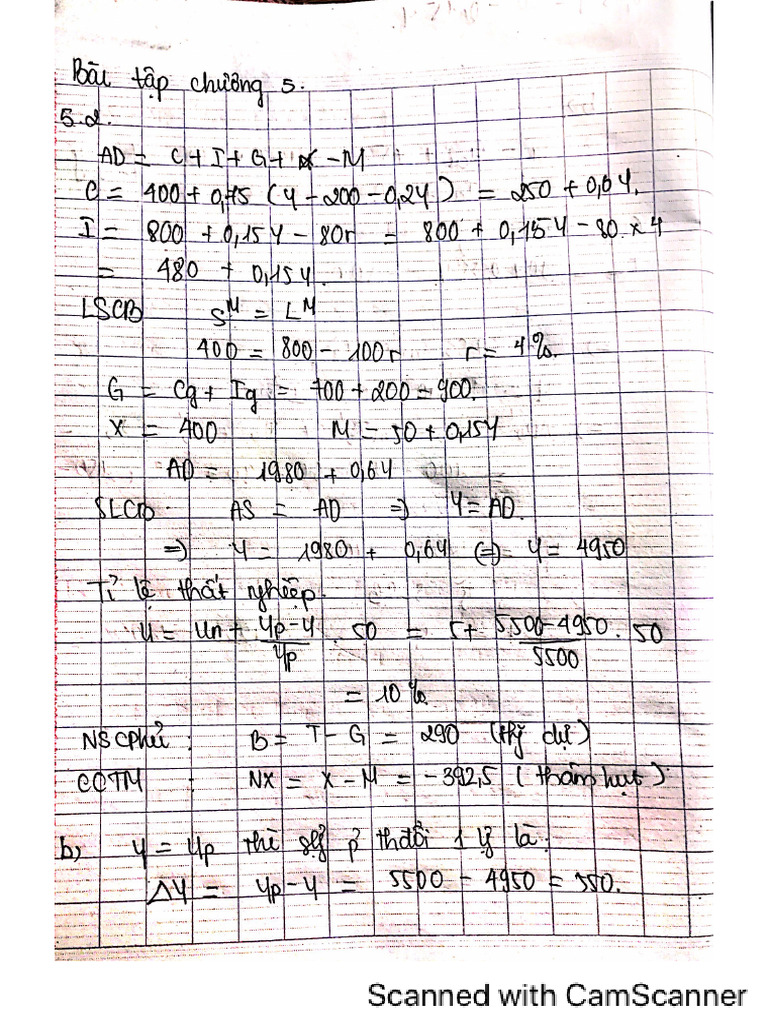 Bài tập chương 5.
5.2.
AD = C + I + G + X - M
C = 400 + 0,75 (Y - 200 - 0,2Y) = 250 + 0,6Y.
I = 800 + 0,15Y - 80r = 800 + 0,15Y - 80 x 4
= 480 + 0,15Y.
LSCB S^M = L^M
400 = 800 - 100r r = 4%.
G = Cg + Ig = 700 + 200 = 900.
X = 400 M = 50 + 0,15Y
AD = 1980 + 0,6Y
SLCB. AS = AD => Y = AD.
=> Y = 1980 + 0,6Y (=) Y = 4950
Tỉ lệ thất nghiệp.
U = Un + (Yp - Y)/Yp . 50 = 5 + (5500 - 4950)/5500 . 50
= 10%.
NSCphủ : B = T - G = 290 (thg dư)
CCTM : NX = X - M = -392,5 (thâm hụt)
b) Y = Yp thì slg p thđổi 1 lg là:
ΔY = Yp - Y = 5500 - 4950 = 550.
Scanned with CamScanner